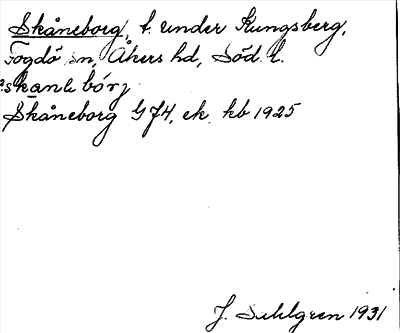 Skåneborg, t. under Kungsberg,
Fogdö sn, Åkers hd, Söd. l.
Skåneborg GJ4, ek. kb 1925
J. Sahlgren 1931